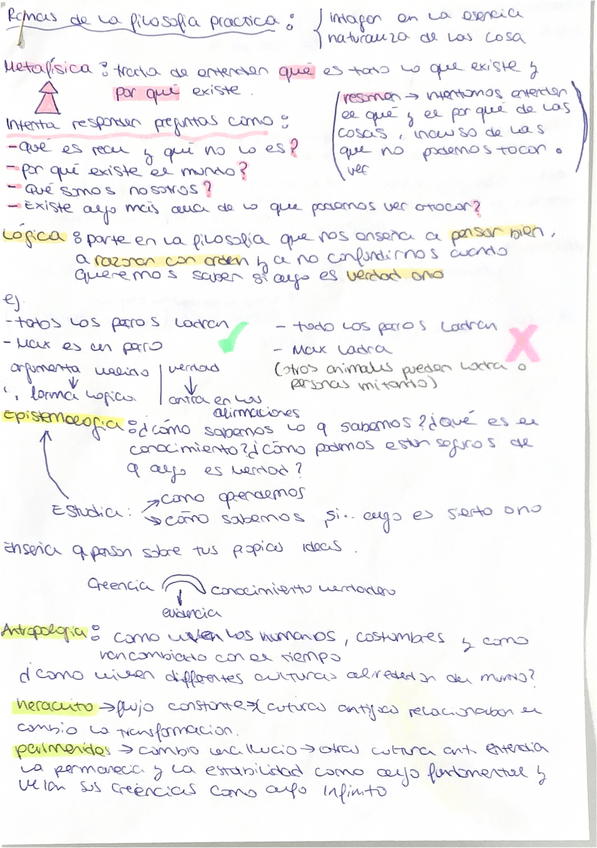 Ramas de la filosofía practica: indagan en la esencia
naturaleza de las cosa
Metafísica: trata de entender qué es todo lo que existe y
por qué existe.
resumen → intentamos entender
el qué y el por qué de las
cosas, incluso de las
que no podemos tocar o
ver
Intenta responder preguntas como:
- qué es real y qué no lo es?
- por qué existe el mundo?
- Qué somos nosotros?
- Existe algo más alla de lo que podemos ver o tocar?
Lógica: parte en la filosofia que nos enseña a pensar bien,
a razonar con orden y a no confundirnos cuando
queremos saber si algo es verdad o no
ej
- todos los perros ladran
- Max es un perro
- todo los perros ladran
- Max ladra
(otros animales pueden ladrar o
personas imitando)
argumento valido | verdad
forma logica entra en las
afirmaciones
Epistemologia: ¿cómo sabemos lo q sabemos? ¿Qué es el
conocimiento? ¿cómo podemos estar seguros de
q algo es verdad?
Estudia: → como aprendemos
→ cómo sabemos si.. algo es sierto o no
Enseña a pensar sobre tus propias ideas.
Creencia conocimiento verdadero
evidencia
Antropologia: como viven los humanos, costumbres y como
han cambiado con el tiempo
¿como viven differentes culturas alrededor del mundo?
heraclito → flujo constante → culturas antiguas relacionaban el
cambio la transformacion.
parlmenides → cambio una ilucio → otras cultura anti entendia
la permanecia y la estabilidad como algo fundamental y
veian sus creencias como algo infinito